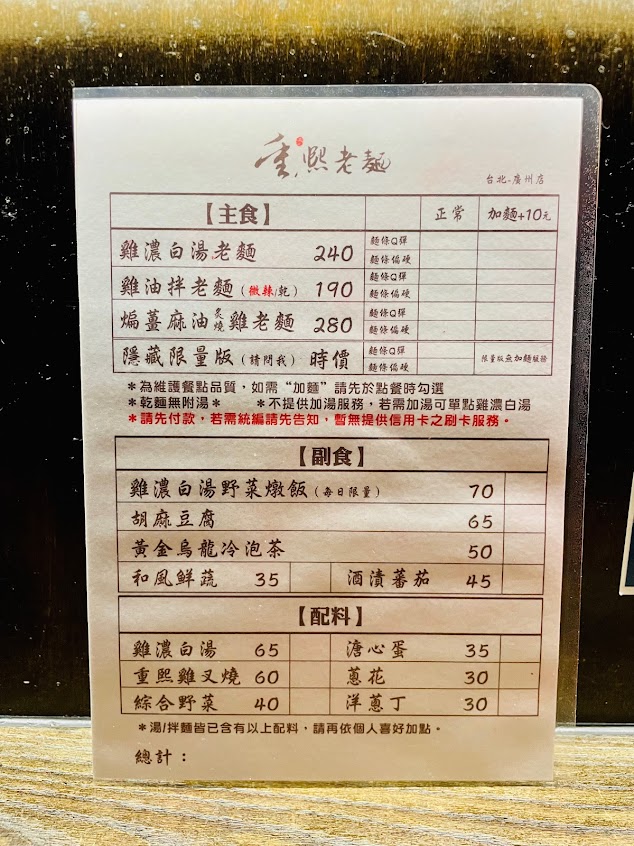 重熙老麵
台北-廣州店
【主食】 正常 加麵+10元
雞濃白湯老麵 240 麵條Q彈
麵條偏硬
雞油拌老麵（微辣/乾） 190 麵條Q彈
麵條偏硬
煸薑麻油炙燒雞老麵 280 麵條Q彈
麵條偏硬
隱藏限量版（請問我） 時價 麵條Q彈 限量版無加麵服務
麵條偏硬
＊為維護餐點品質，如需“加麵”請先於點餐時勾選
＊乾麵無附湯＊ ＊不提供加湯服務，若需加湯可單點雞濃白湯
＊請先付款，若需統編請先告知，暫無提供信用卡之刷卡服務。
【副食】
雞濃白湯野菜燉飯（每日限量） 70
胡麻豆腐 65
黃金烏龍冷泡茶 50
和風鮮蔬 35 酒漬蕃茄 45
【配料】
雞濃白湯 65 溏心蛋 35
重熙雞叉燒 60 蔥花 30
綜合野菜 40 洋蔥丁 30
＊湯/拌麵皆已含有以上配料，請再依個人喜好加點。
總計：